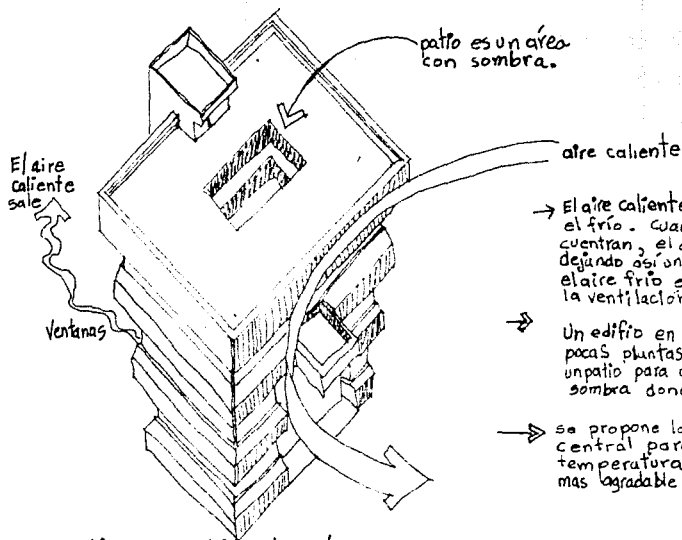 patio es un área
con sombra.
El aire
caliente
sale
Ventanas
aire caliente
→ El aire caliente
el frío. Cuan
cuentran, el a
dejando así un
el aire frío e
la ventilación
→ Un edifio en
pocas plantas
un patio para c
sombra dond
→ se propone la
central para
temperatura
mas agradable